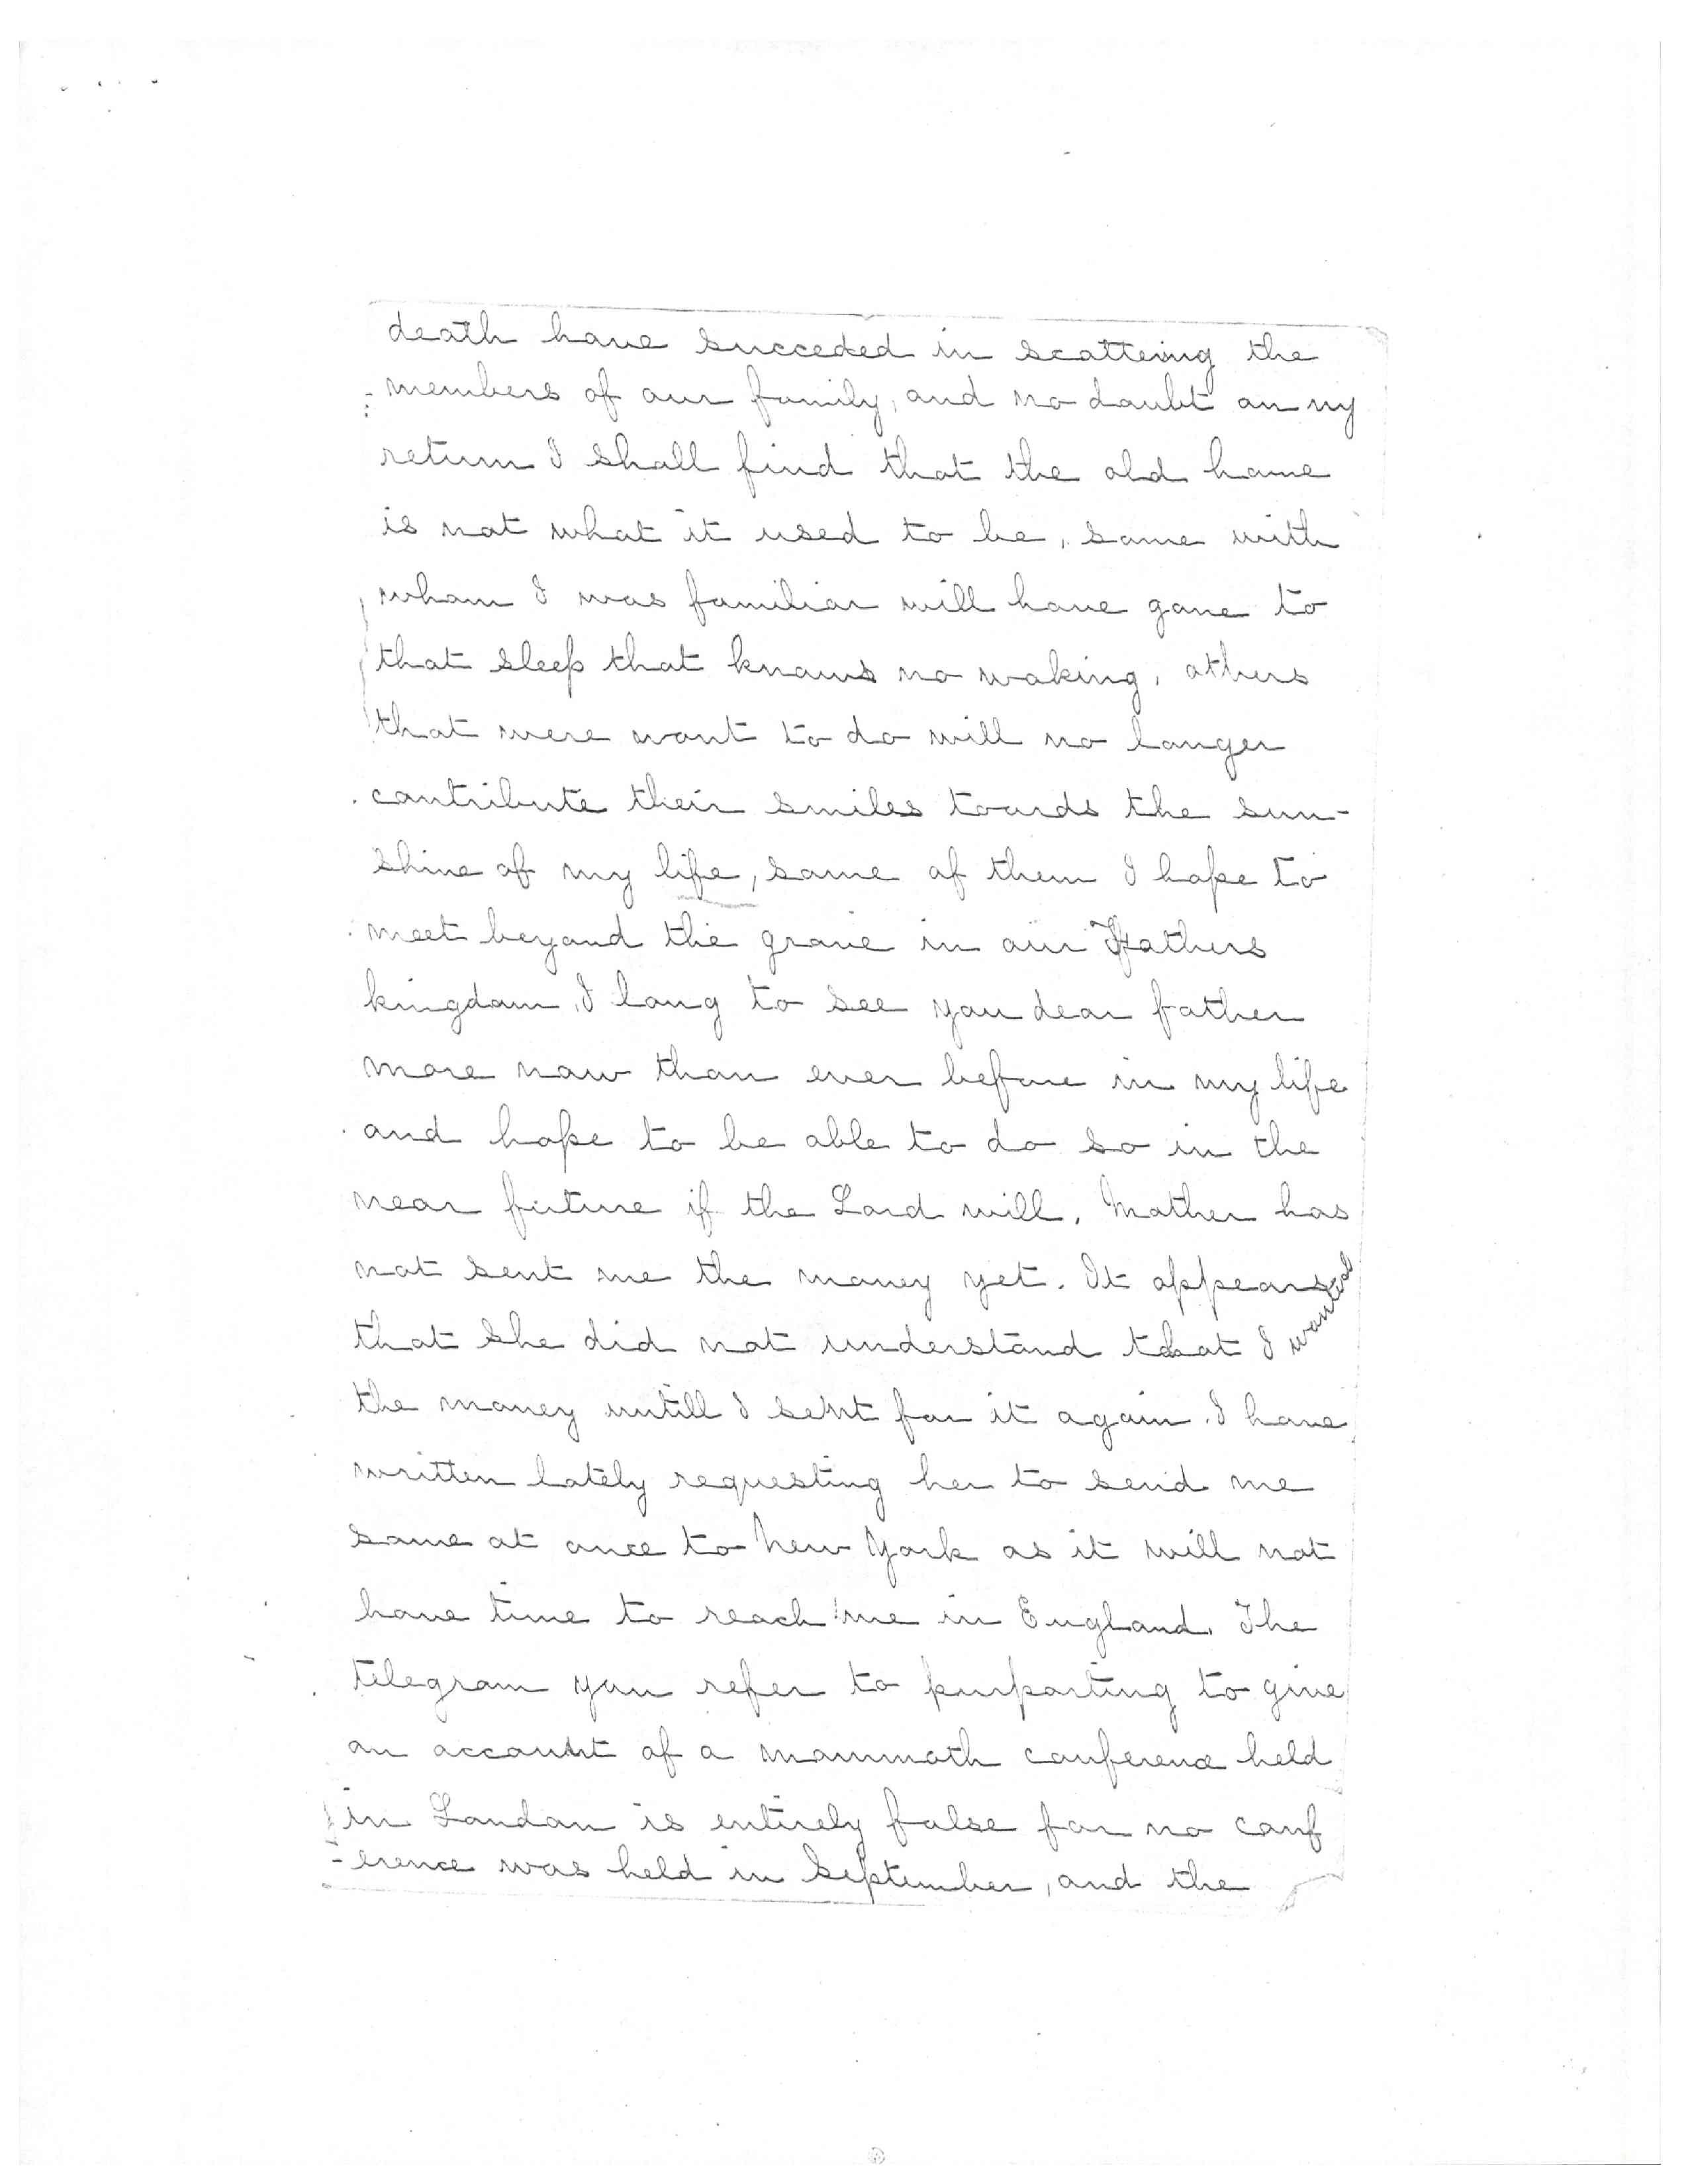 death have succeded in scattering the
members of our family, and no doubt on my
return I shall find that the old home
is not what it used to be, some with
whom I was familiar will have gone to
that sleep that knows no waking, others
that were wont to do will no longer
contribute their smiles towrds the sun-
shine of my life, some of them I hope to
meet beyond the grave in our Fathers
kingdom, I long to see you dear father
more now than ever before in my life
and hope to be able to do so in the
near future if the Lord will. Mother has
not sent me the money yet. It appears
that she did not understand that I wanted
the money untill I sent for it again. I have
written lately requesting her to send me
some at once to New York as it will not
have time to reach me in England. The
telegram you refer to purporting to give
an account of a mammoth conference held
in London is entirely false for no conf
-erence was held in September, and the